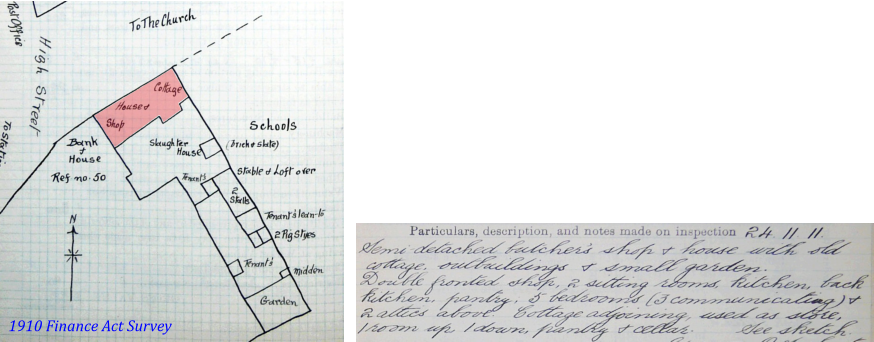 Post Office
To The Church
High Street
Cottage
House &
Shop
Schools
(brick & slate)
Slaughter
House
Bank
&
House
Ref no. 50
Stable & Loft over
Tenant's
2
Stalls
Tenant's lean-to
2 Pig Styes
N
Tenant's
Midden
Garden
1910 Finance Act Survey
Particulars, description, and notes made on inspection 24.11.11.
Semi detached butcher's shop & house with old
cottage, outbuildings & small garden.
Double fronted shop, 2 sitting rooms, kitchen, back
kitchen, pantry, 5 bedrooms (3 communicating) &
2 attics above. Cottage adjoining, used as store,
1 room up 1 down, pantry & cellar. See sketch.